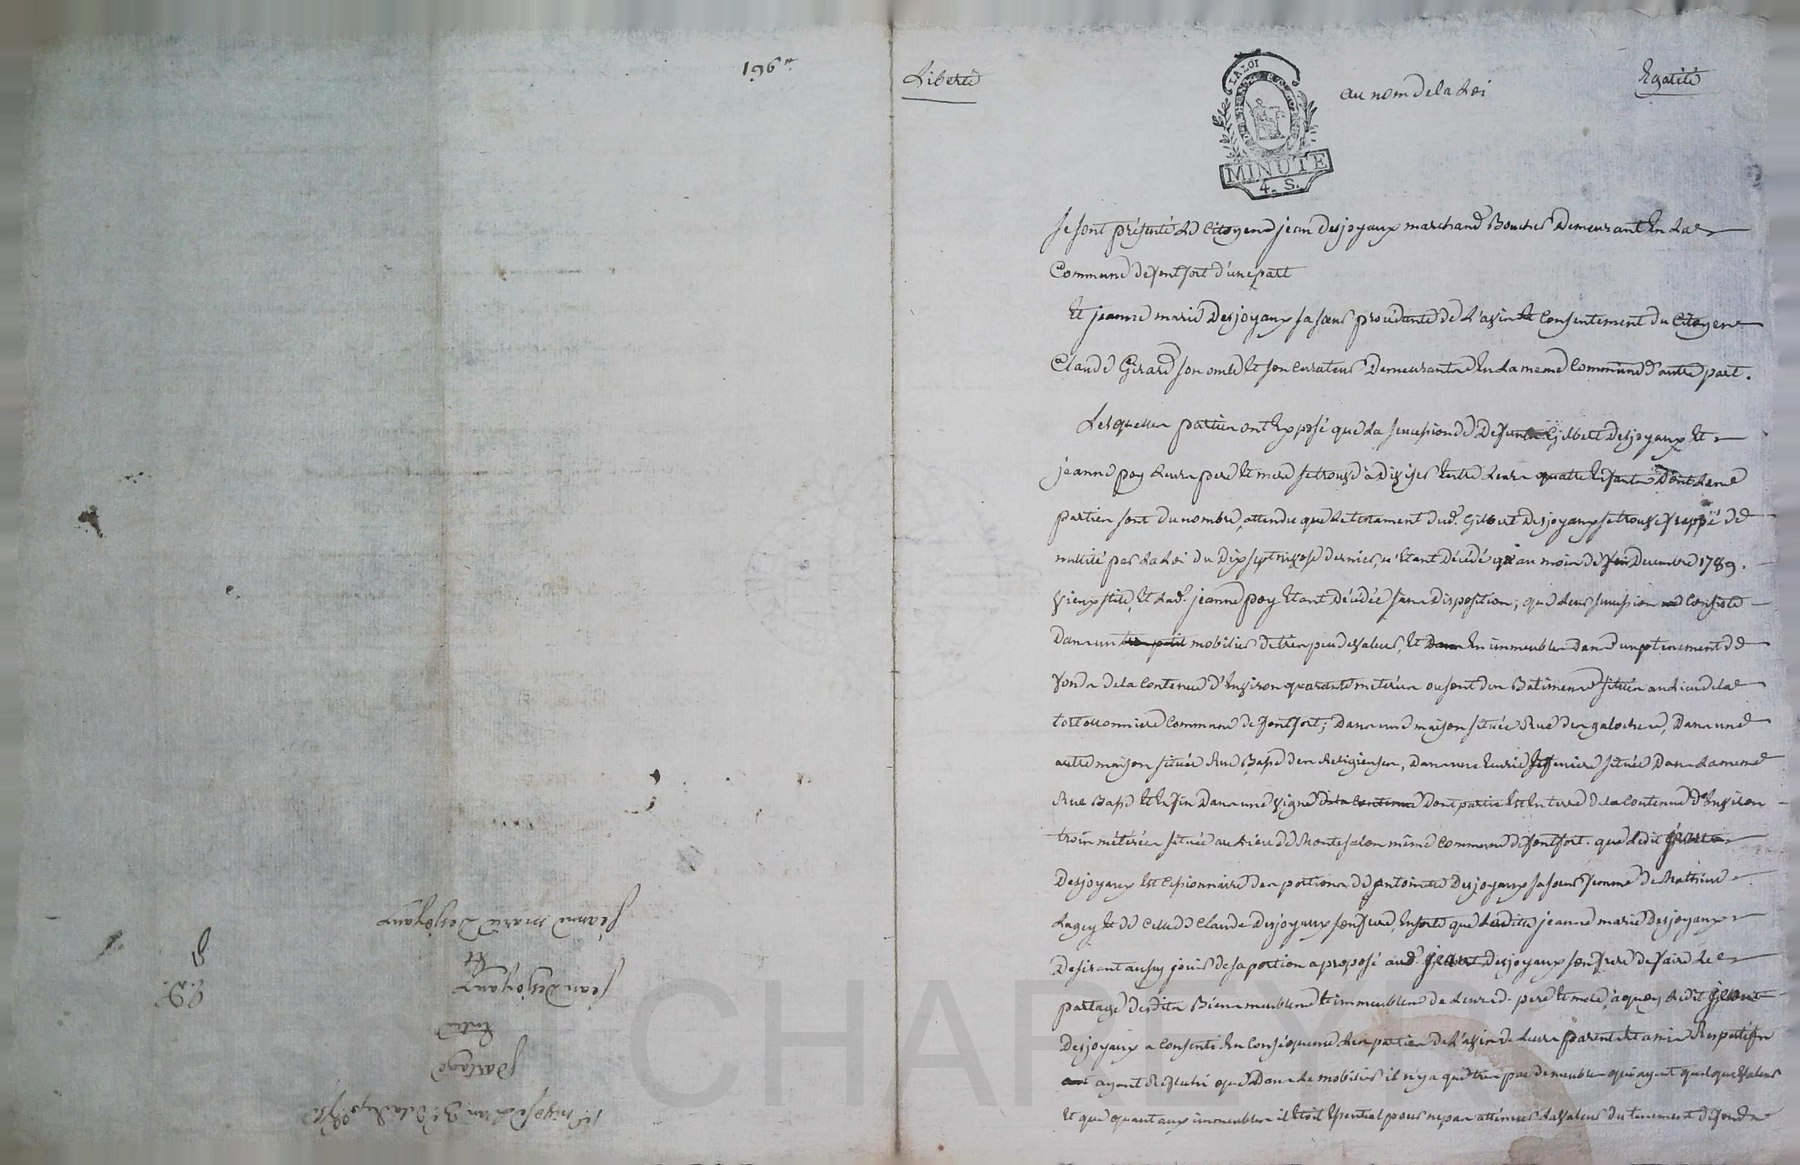 196
Liberté
au nom de la Loi
Egalité
LA LOI
MINUTE
4. S.
Se sont présenté Le Citoyend jean Desjoyaux marchand Boucher Demeurant En La
Commune de fontfort d'une part
Et jeanne marie Desjoyaux sa sœur procedante de L'avis et Consentement du Citoyen
Claude Girard son oncle Et son Curateur Demeurant En La meme Commune d'autre part.
Lesquelles parties ont Exposé que La succession de Defunts Gilbert Desjoyaux Et
jeanne poy Leurs pere Et mere se trouve à Diviser Entre Leurs quatre Enfants Dont Les
parties sont du nombre, attendu que Le testament dud. Gilbert Desjoyaux se trouve frappé de
nullité par La Loi du Dix sept nivose dernier, s'Etant Décédé qu'au mois de Decembre 1789.
vieux stile, Et Lad. jeanne poy Etant Décédée sans Disposition; que Leur succession Consiste
Dans un très petit mobilier de très peu de valeur, Et Dans En immeubles Dans un ptenement de
fonds de la Contenue d'Environ quarante meterées ou sont des Batiments situés au lieu de la
commune de fontfort; Dans une maison située Rue des galoches, Dans une
autre maison située Rue Basse des Religieuses, Dans une Ecurie Et feniere située Dans La meme
Rue Basse Et Enfin Dans une vigne de la Contenue Dont partie Est En terre de la Contenue d'Environ
trois méterées située au Lieu de même Commune de fontfort. que Ledit
Desjoyaux Est Cessionnaire des portions de antoinette Desjoyaux sa sœur femme de Mathieu
Lagey Et de Celle de Claude Desjoyaux son frere, En sorte que Laditte jeanne marie Desjoyaux
Desirant aussy jouir de sa portion a proposé aud. jean Desjoyaux son frere de faire Le
partage desdits Biens meubles Et immeubles de Leursd. pere Et mere, à quoy Ledit
Desjoyaux a Consenti. En Conséquence Les parties de L'avis de Leurs parents Et amis Respectifs
ayant Reflechi que Dans Le mobilier il n'y a que très peu de meubles qui ayent quelque valeur
Et que quant aux immeubles il Etoit Essentiel pour ne pas attenuer La valeur du tenement de fonds
1er nivose L'an 3e de la Rep.
partage
Entre
jean Desjoyaux
Et
jeanne marie Desjoyaux
CHAREYRON